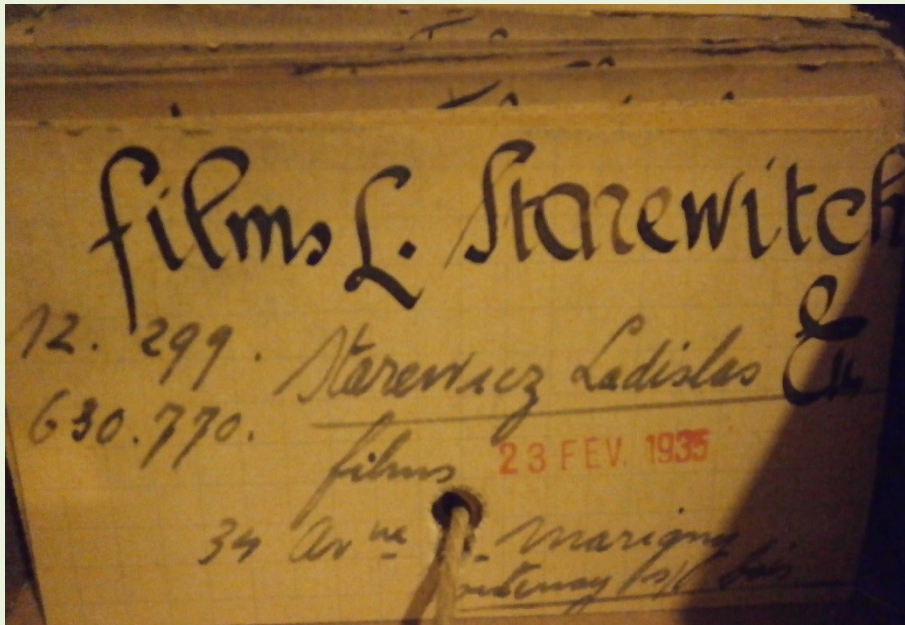 films L. Starewitch
12. 299. Starewicz Ladislas
630.770.
films 23 FEV. 1935
34 Av ue Marigny
Fontenay s/s bois